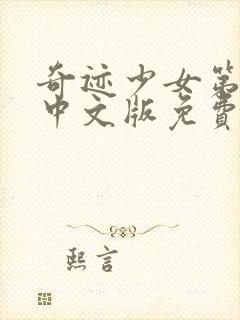 奇迹少女第
中文版免费
熙言